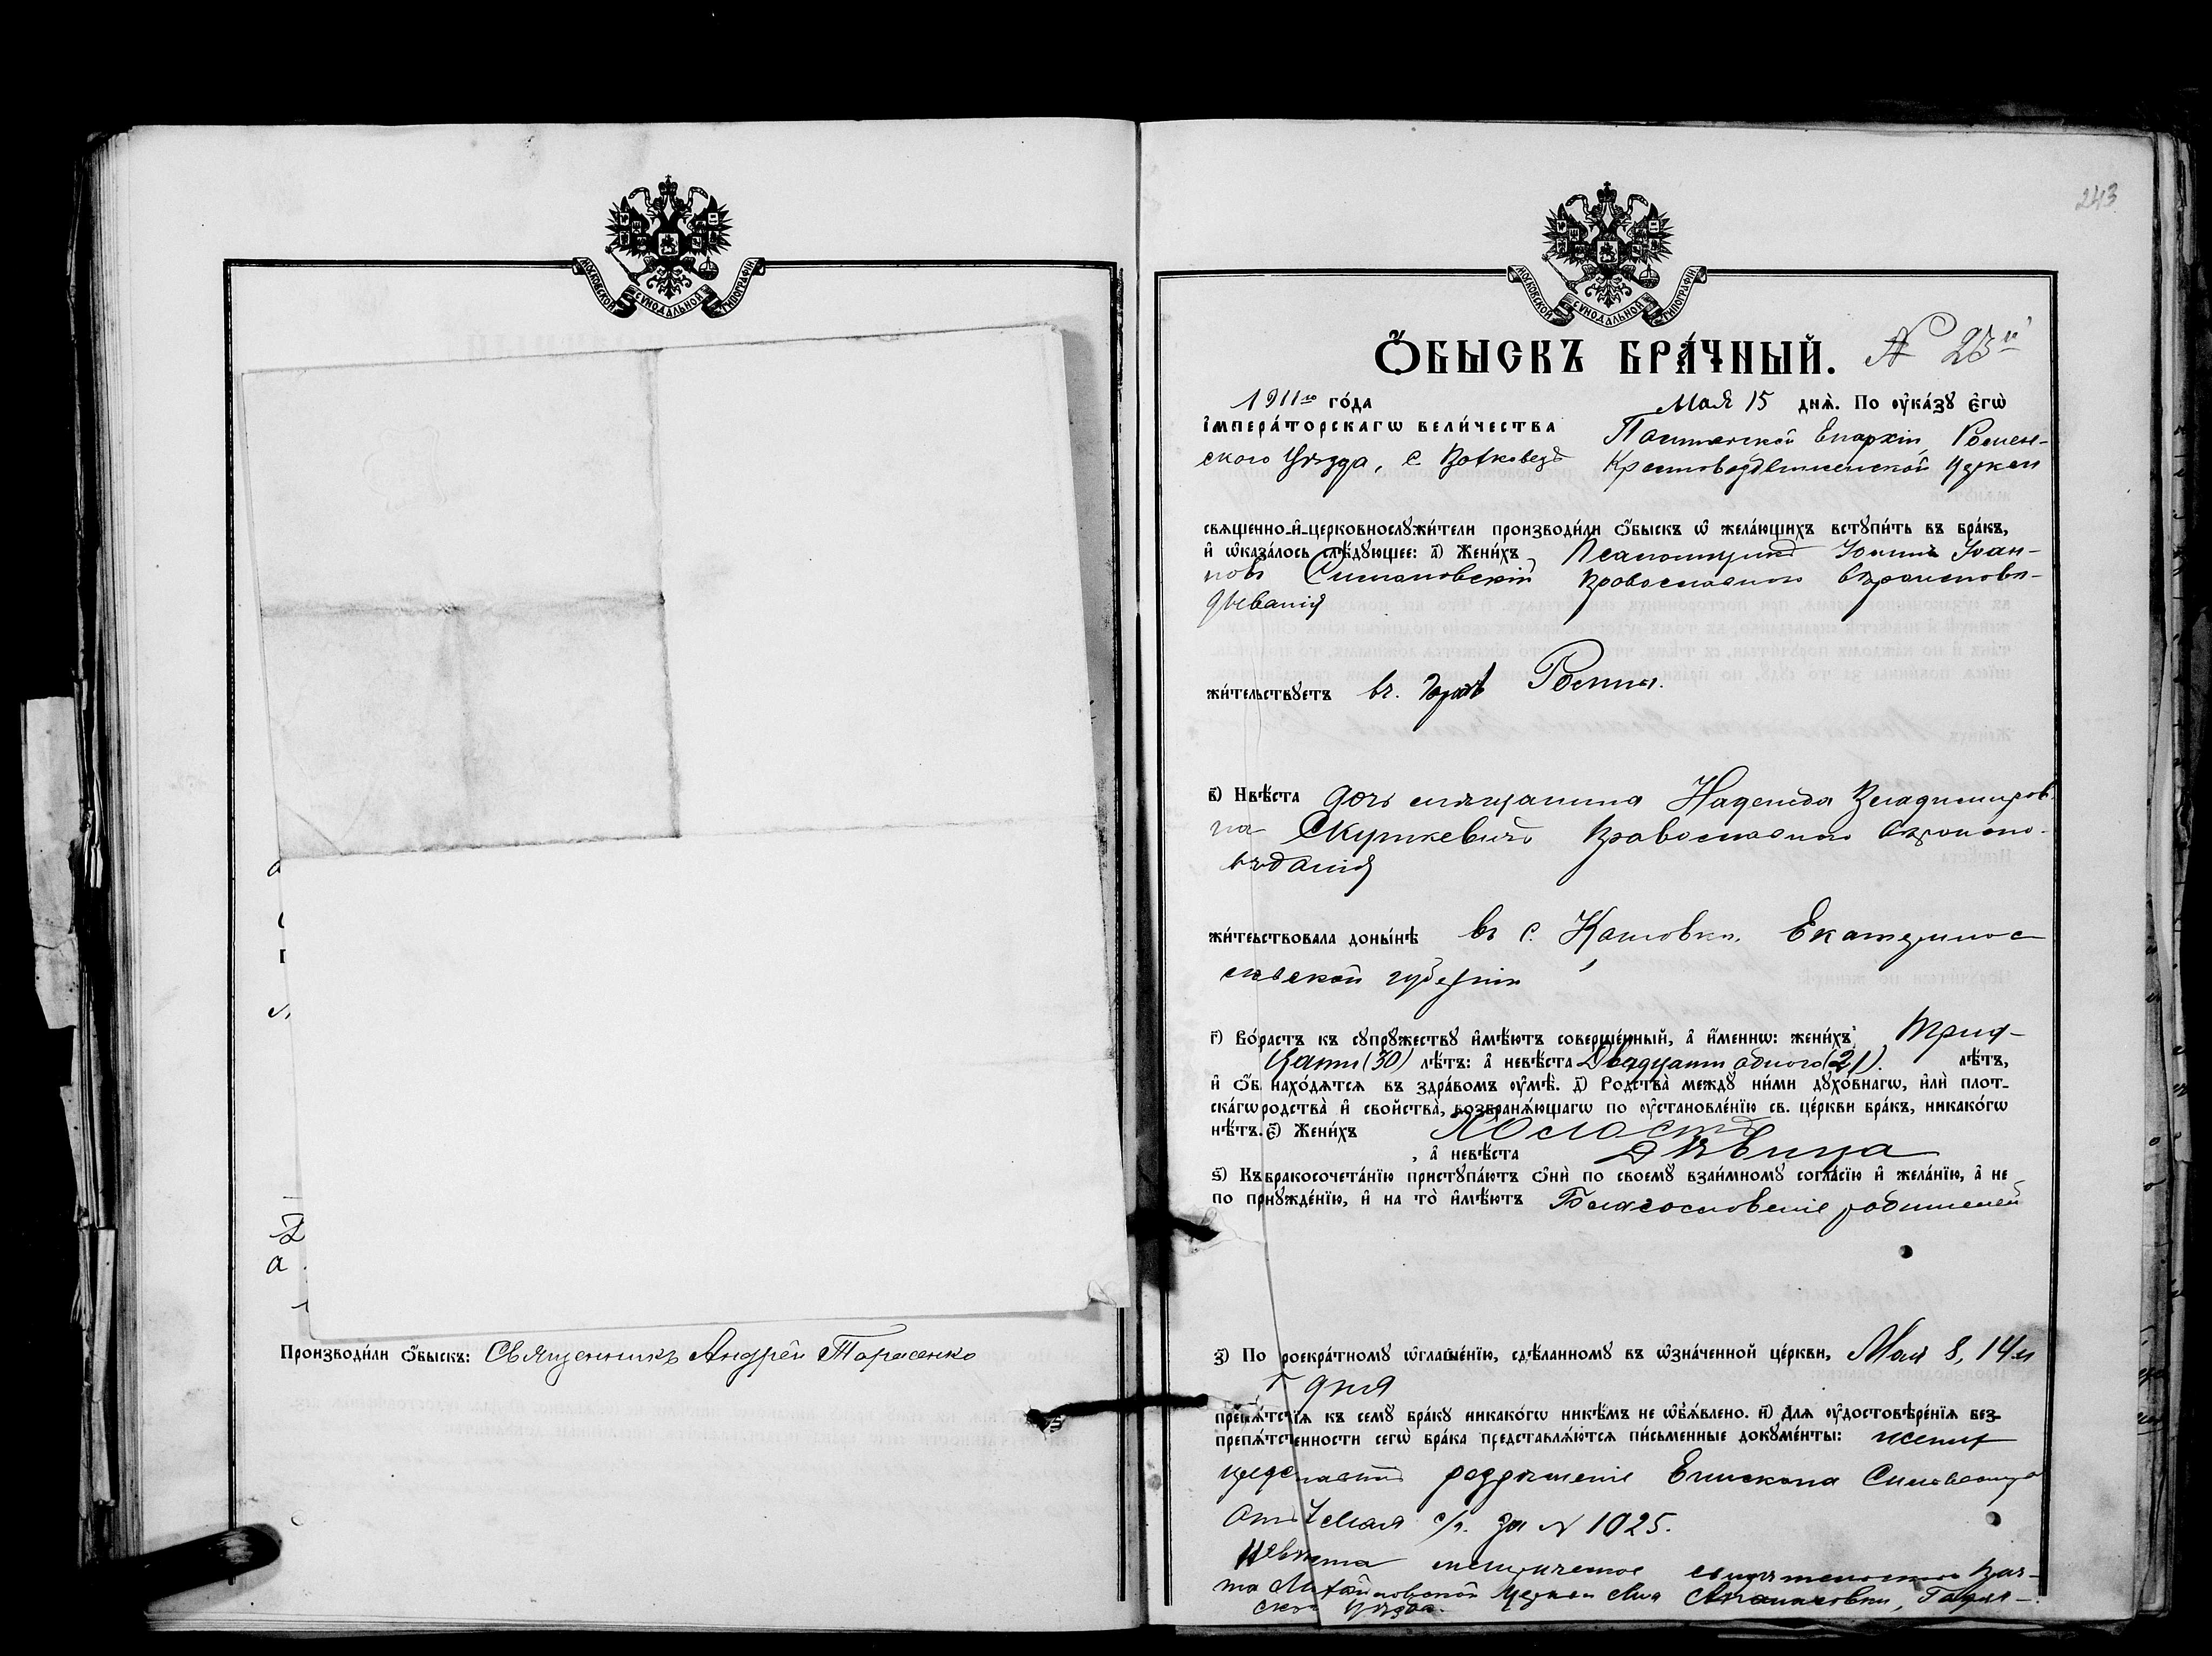 МОСКОВСКОЙ СѴНОДАЛЬНОЙ ТИПОГРАФІИ
Производи́ли ѻ҆́быскъ: Священникъ Андрей Тарасенко
243
МОСКОВСКОЙ СѴНОДАЛЬНОЙ ТИПОГРАФІИ
Ѻ҆́БЫСКЪ БРА́ЧНЫЙ. № 23й
1911го го́да Мая 15 днѧ̀. По ᲂу҆ка́зꙋ є҆гѡ̀
і҆мпера́торскагѡ вели́чества Полтавской Епархіи, Ромен-
ского Уѣзда, с. Крестовоздвиженской церкви
свѧщенно-и҆-церковнослꙋжи́тели производи́ли ѻ҆́быскъ ѡ҆ жела́ющихъ встꙋпи́ть въ бра́къ,
и҆ ѡ҆каза́лось слѣ́дꙋющее: а҃) Жени́хъ Псаломщикъ Іоаннъ Іоан-
новъ православнаго вѣроисповѣ-
дыванія
жи́тельствꙋетъ въ. городѣ Ромны.
в҃) Невѣ́ста дочь мѣщанина Надежда Владиміров-
на Скуркевичъ православнаго вѣроиспо-
вѣданія
жи́тельствовала доны́нѣ въ с. Екатеринос-
лавской губерніи
г҃) Во́растъ къ сꙋпрꙋ́жествꙋ и҆мѣ́ютъ соверше́нный, а҆ и҆́меннѡ: жени́хъ Трид-
цати (30) лѣ́тъ: а҆ невѣ́ста Двадцати одного (21). лѣ́тъ,
и҆ ѻ҆́ба нахо́дѧтсѧ въ здра́вомъ ᲂу҆мѣ̀. д҃) Родства̀ междꙋ̀ ни́ми дꙋхо́внагѡ, и҆лѝ плот-
ска́гѡ родства̀ и҆ свойства̀, возбранѧ́ющагѡ по ᲂу҆становле́нїю св. це́ркви бра́къ, никако́гѡ
нѣ́тъ. є҃) Жени́хъ Холостъ
, а҆ невѣ́ста Дѣвица
ѕ҃) Къ бракосочета́нїю пристꙋпа́ютъ ѻ҆нѝ по своемꙋ̀ взаи́мномꙋ согла́сїю и҆ жела́нїю, а҆ не
по принꙋжде́нїю, и҆ на то̀ и҆мѣ́ютъ Благословеніе родителей
з҃) По роекра́тномꙋ ѡ҆глаше́нїю, сдѣ́ланномꙋ въ ѡ҆зна́ченной це́ркви, Мая 8, 14 и
дня
препѧ́тствїѧ къ семꙋ̀ бра́кꙋ никако́гѡ никѣ́мъ не ѡ҆б̾ѧ́влено. и҃) Для ᲂу҆достовѣ́ренїѧ без-
препѧ́тственности сегѡ̀ бра́ка представлѧ́ютсѧ пи́сьменные докꙋме́нты: жених
разрѣшеніе Епископа Сильвестра
отъ 7 Мая с/г. за № 1025.
Невѣста метрическое свидѣтельство
церкви
уѣзда.